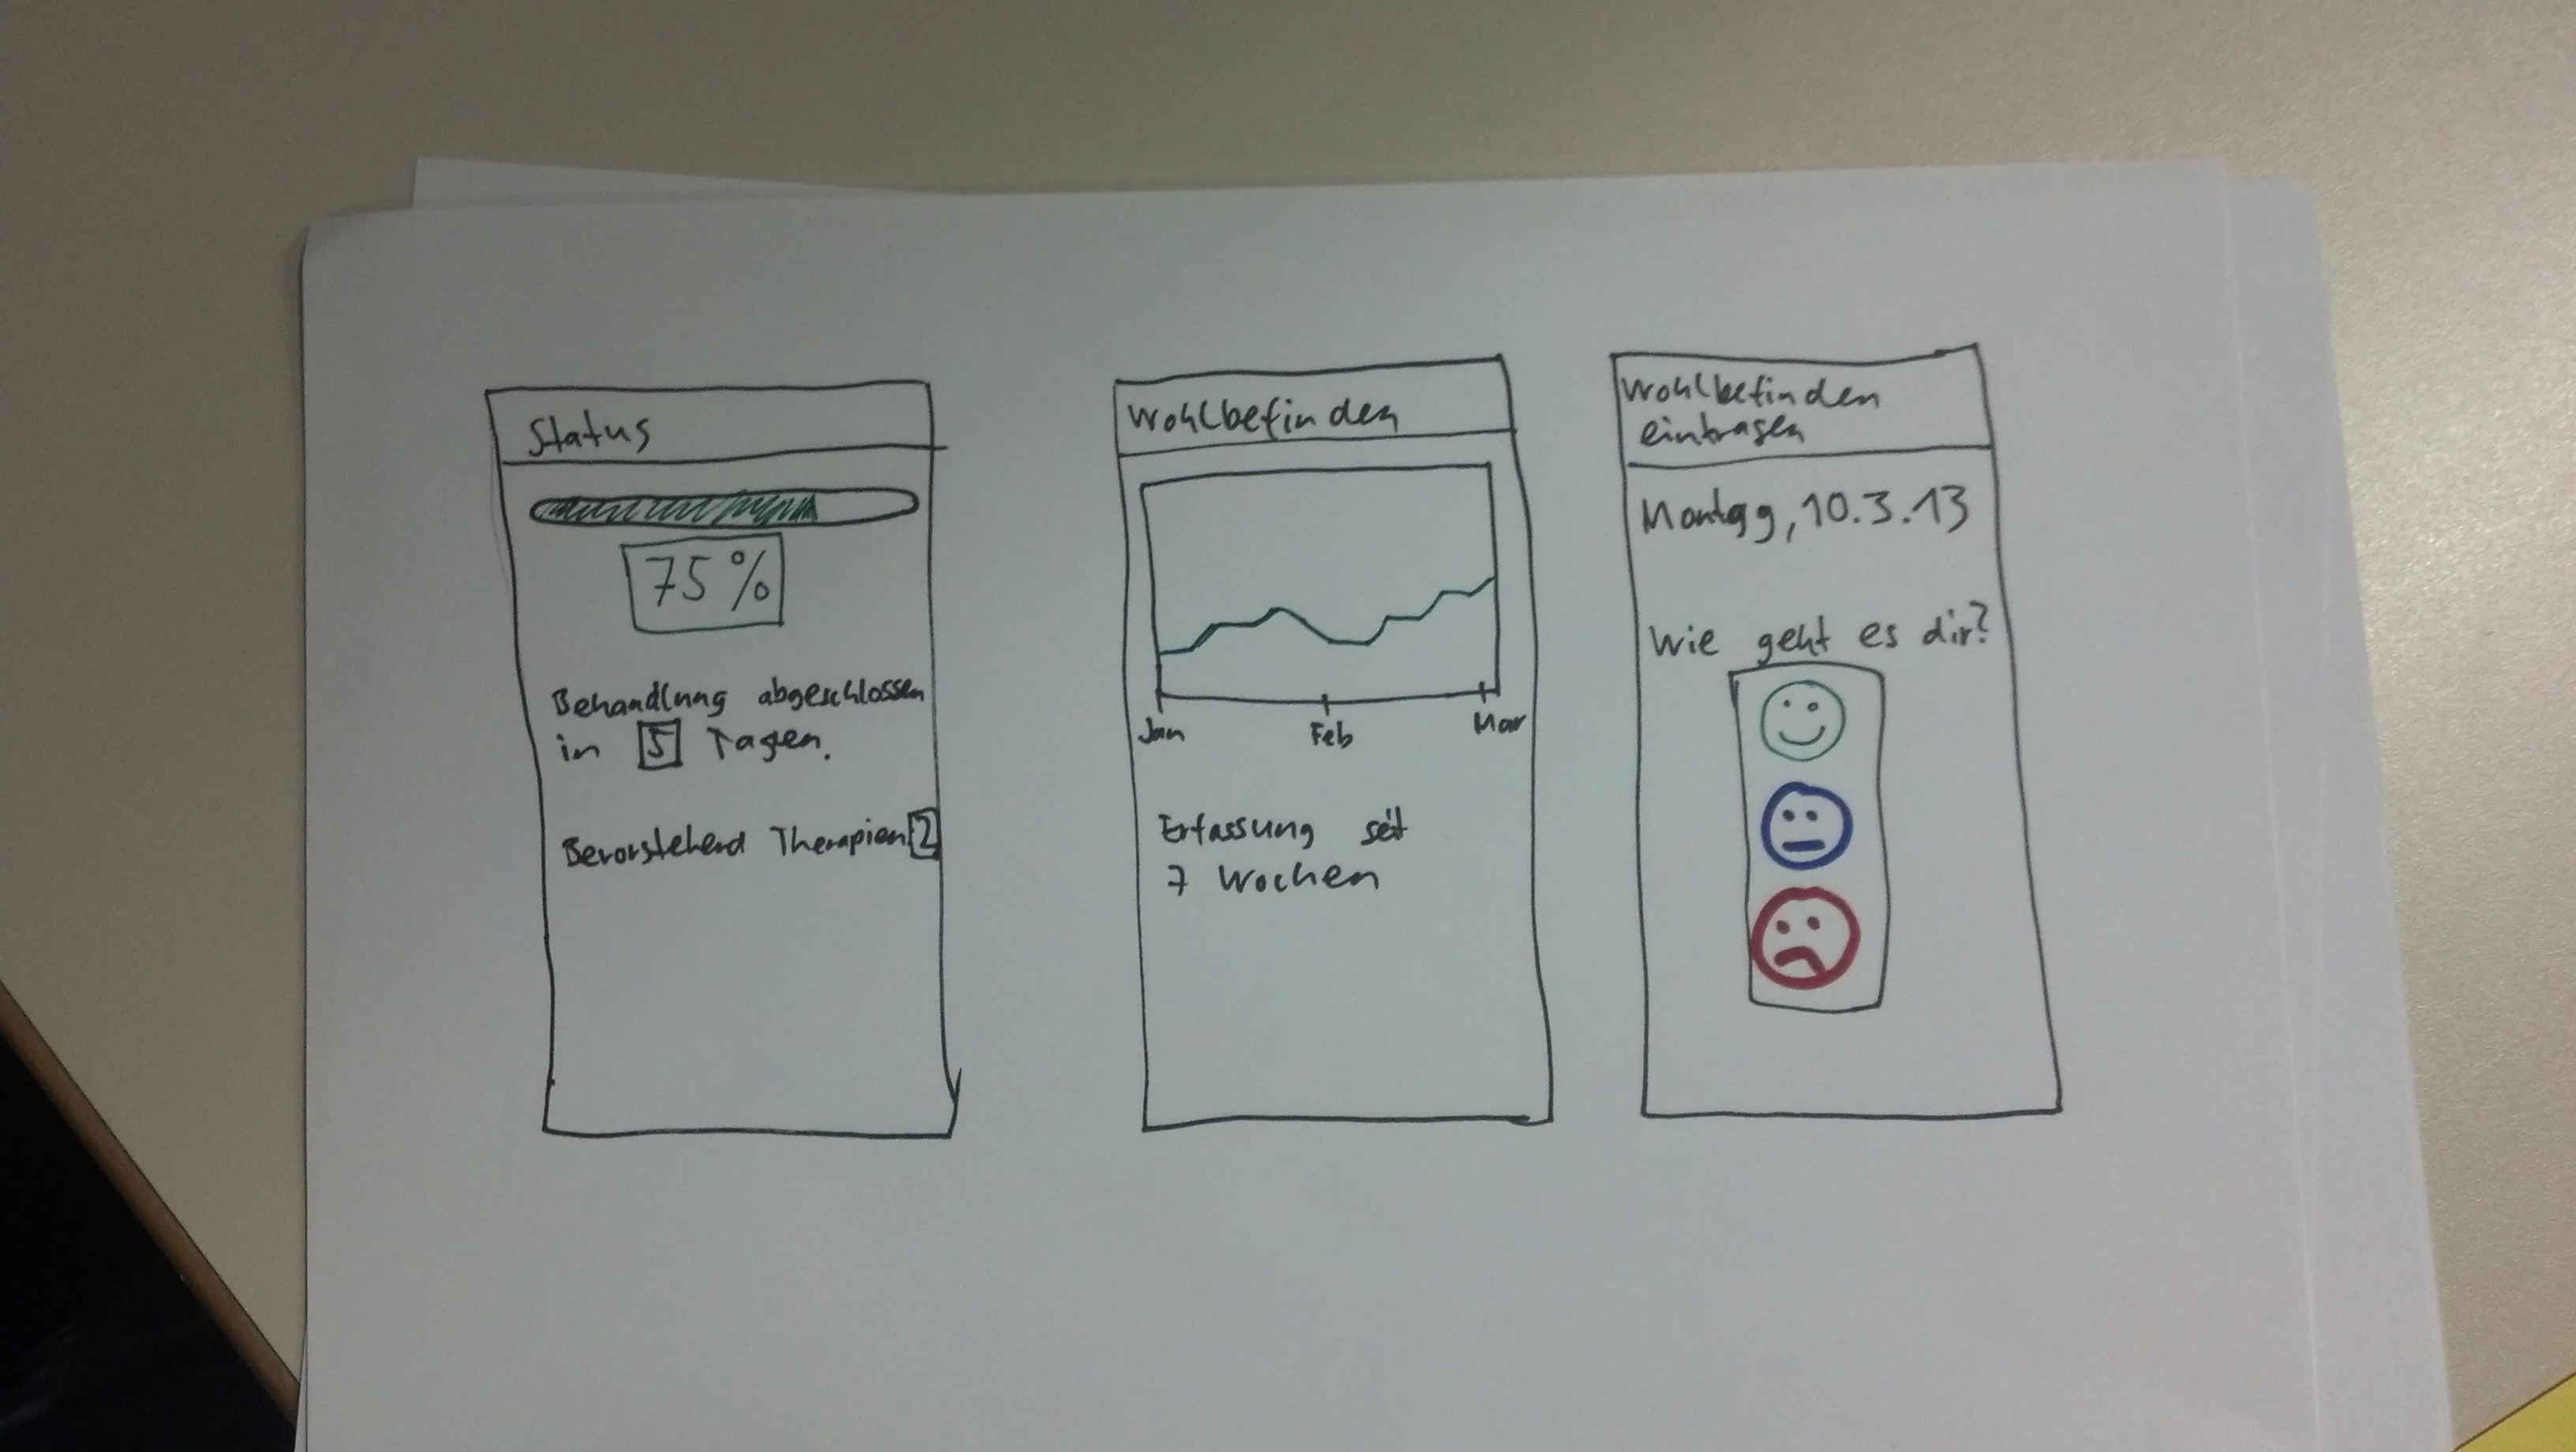 Status
75%
Behandlung abgeschlossen
in 5 Tagen.
Bevorstehend Therapien 2
Wohlbefinden
Jan Feb Mar
Erfassung seit
7 Wochen
Wohlbefinden
eintragen
Montag, 10.3.13
Wie geht es dir?